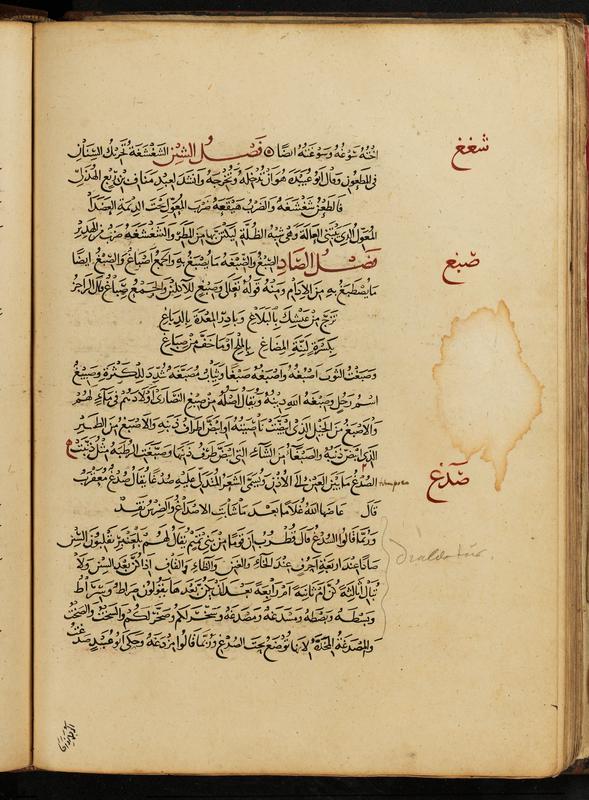 أخته سوغه وسوغته أيضًا ۞ فصل الشين الشغشغة تحريك السنان
في المطعون وقال أبو عبيدة هو أن تدخله وتخرجه وأنشد لعبد مناف بن ربع الهذلي
فالطعن شغشغة والضرب هيقعة ضرب المعول تحت الديمة العضدا
المعول الذي يبتني العالة وهي شبه الظلة ليستتر بها من المطر والشغشغة ضرب من الهدير
فصل الصاد الصبغ والصبغة ما يصبغ به والجمع أصباغ والصبغ أيضا
ما يصطبغ به من الإدام ومنه قوله تعالى وصبغ للآكلين والجمع صباغ قال الراجز
تزج من عيشك بالبلاغ وباكر المعدة بالدباغ
بكسرة لينة المضاغ بالملح أو ما خف من صباغ
وصبغت الثوب أصبغه وأصبغه صبغا وثياب مصبغة شدد للكثرة وصبيغ
اسم رجل وصبغة الله دينه ويقال أصله من صبغ النصارى أولادهم في ماء لهم
والأصبغ من الخيل الذي ابيضت ناصيته أو ابيض أطراف ذنبه والأصبغ من الطير
الذي ابيض ذنبه والصبغاء من الشاء التي ابيض طرف ذنبها وصبغت الرطبة مثل ذنبت
الصدغ ما بين العين إلى الأذن ويسمى الشعر المتدلي عليه صدغا يقال صدغ معقرب
قال عاضها الله غلاما بعد ما شابت الأصداغ والضرس نقد
وربما قالوا السدغ قال قطرب إن قوما من بني تميم يقال لهم بلعنبر يقلبون السين
صادا عند أربعة أحرف عند الطاء والقاف والغين والخاء إذا كن بعد السين ولا
تبالي أثالثة كن أم ثانية أم رابعة بعد أن يكن بعدها يقولون صراط وسراط
وبسطة وبصطة ومسدغة ومصدغة وسخر لكم وصخر لكم والسخب والصخب
والمصدغة المخدة لأنها توضع تحت الصدغ وربما قالوا مزدغة وحكى أبو عبيد صدغت
شغغ
صبغ
صدغ